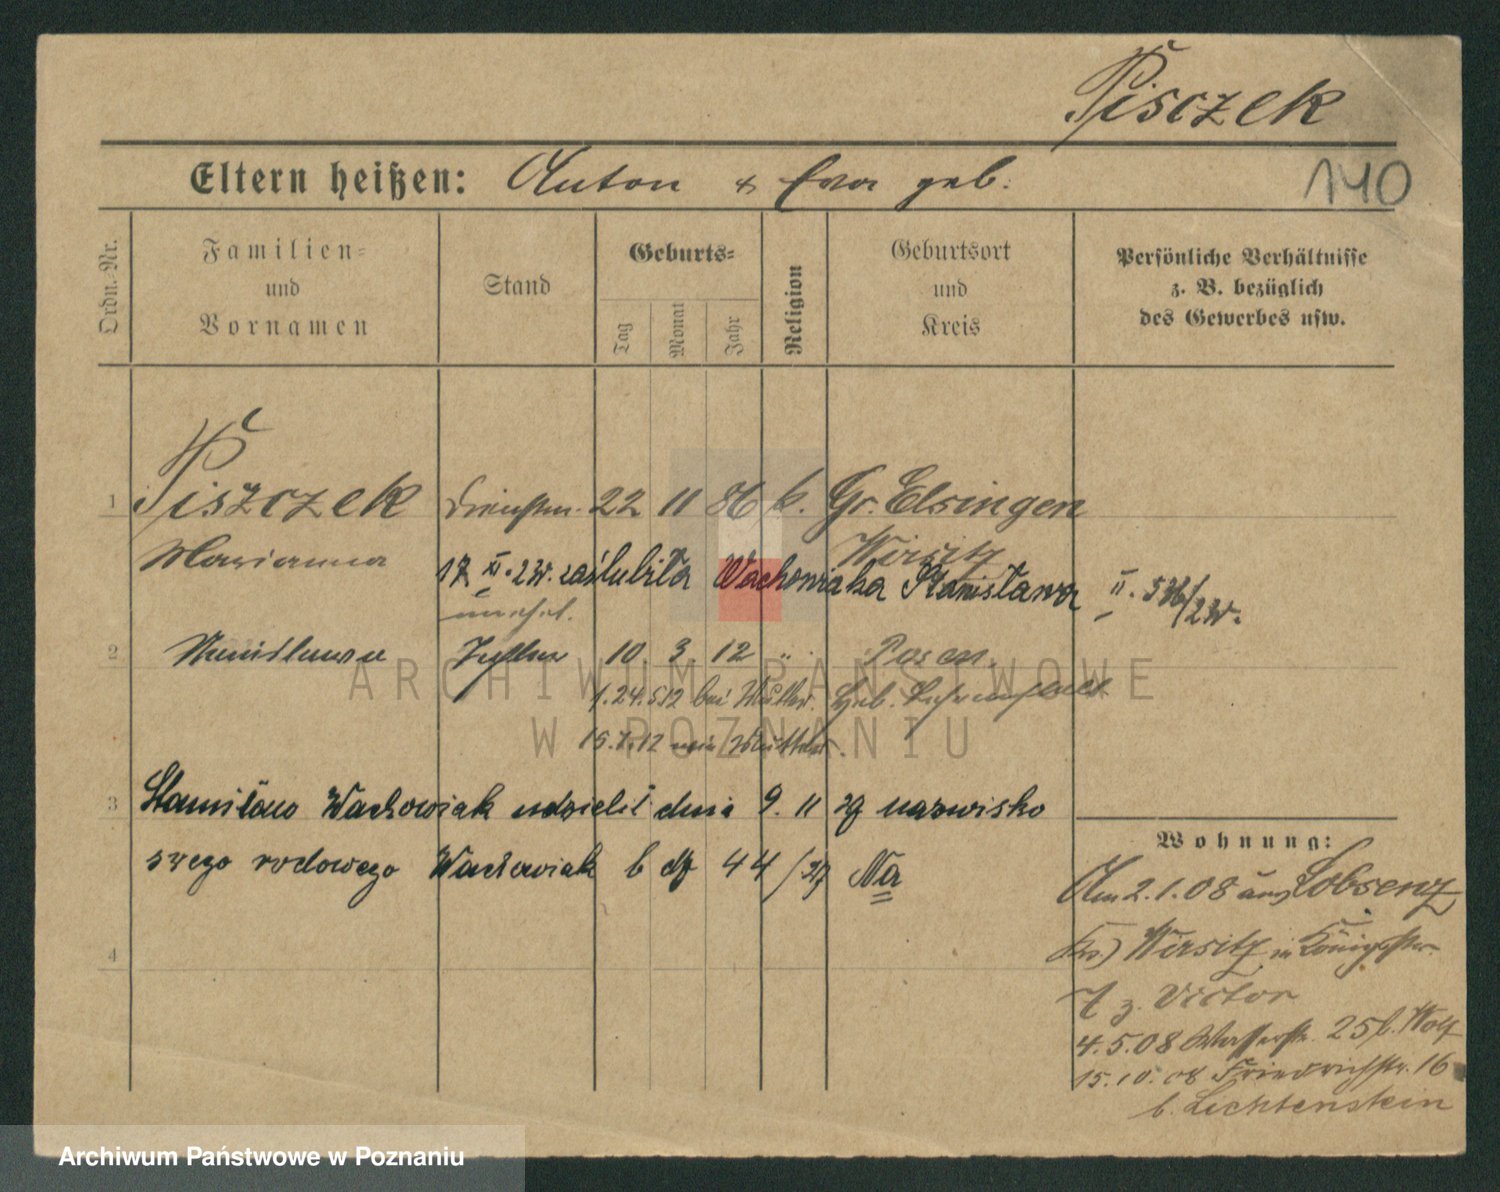 Pisczek
Eltern heißen: Anton & Eva geb.
140
Ordn.-Nr.
Familien-
und
Vornamen
Stand
Geburts-
Tag
Monat
Jahr
Religion
Geburtsort
und
Kreis
Persönliche Verhältnisse
z. B. bezüglich
des Gewerbes usw.
1 Piszczek 22 11 86 k. Gr. Elsingen
Marianna Wirsitz
17. XI. zaślubiła Wachowiaka Stanisława II.
unehel.
2 Tochter 10 3 12 " Posen
1.24.5.12 bei Mutter.
15.7.12 Mutter
ARCHIWUM PAŃSTWOWE
W POZNANIU
3 Stanisław Wachowiak udzielił dnia 9. 11 nazwisko
swego rodowego Wachowiak b 44/ Na
4
Wohnung:
Am 2.1.08 aus Lobsenz
Krs) Wirsitz in Königstr.
7 z. Victor
4.5.08 Wasserstr. 25 b. Wolf
15.10.08 Friedrichstr. 16
b. Lichtenstein
Archiwum Państwowe w Poznaniu